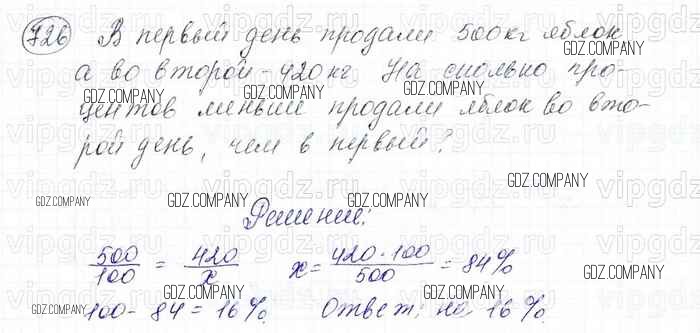 726 В первый день продали 500 кг яблок
а во второй - 420 кг На сколько про-
центов меньше продали яблок во вто-
рой день, чем в первый?
Решение:
500/100 = 420/x x = 420·100/500 = 84%
100 - 84 = 16%. Ответ: на 16%
GDZ.COMPANY
vipgdz.ru